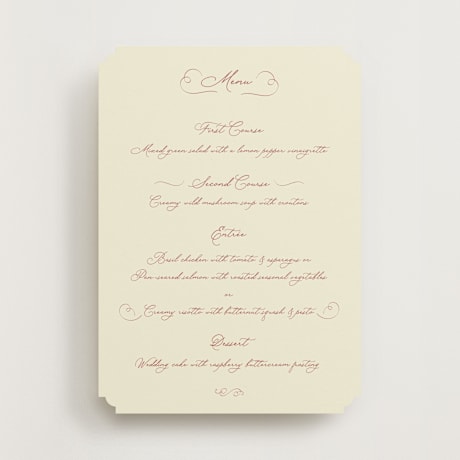 Menu
First Course
Mixed green salad with a lemon pepper vinaigrette
Second Course
Creamy wild mushroom soup with croutons
Entrée
Basil chicken with tomato & asparagus or
Pan-seared salmon with roasted seasonal vegetables
or
Creamy risotto with butternut squash & pesto
Dessert
Wedding cake with raspberry buttercream frosting